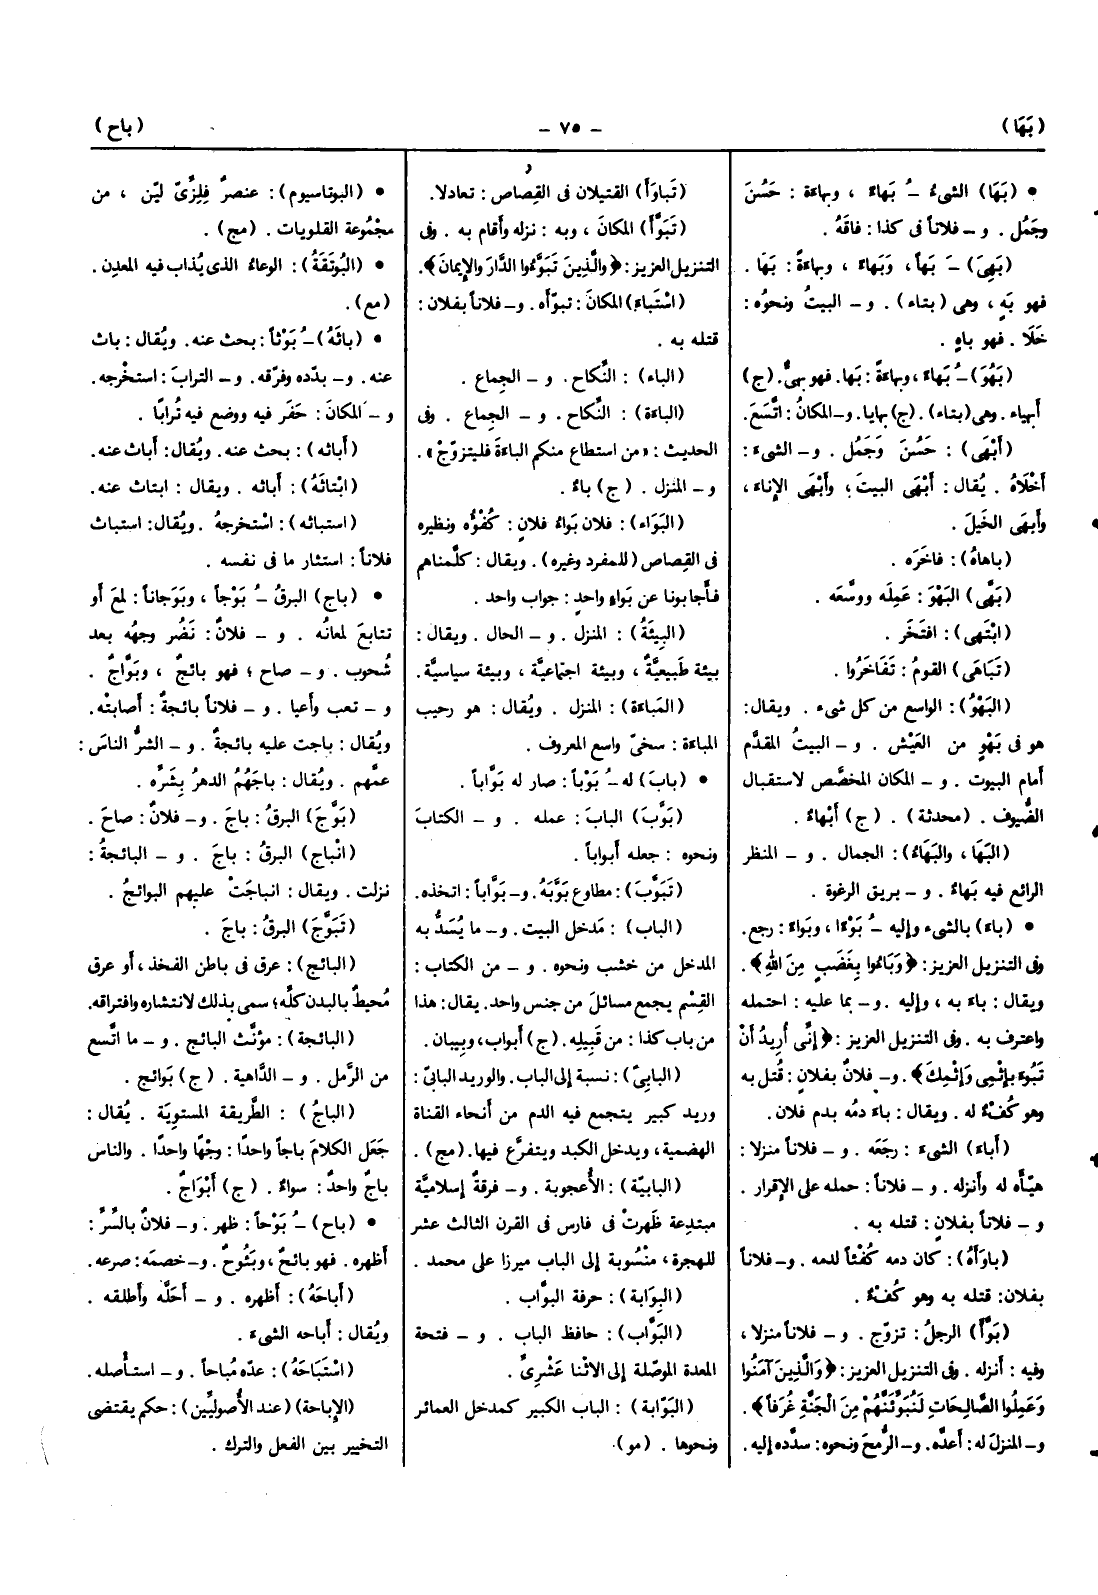 (بَهَا)
– ٧٥ –
(باح)
• (بَهَا) الشىءُ ـُ بَهاءً ، وبهاءة : حَسُنَ
وجَمُل . و – فلاناً فى كذا : فاقَهُ .
(بَهِىَ) ـَ بَهاً، وَبَهاءً ، وبهاءةً : بَهَا .
فهو بَهٍ ، وهى (بتاء) . و – البيتُ ونحوُه :
خَلَا . فهو باهٍ .
(بَهُوَ) ـُ بَهاءً ، وبهاءةً : بَها. فهو بهىٌّ. (ج)
أبهياء . وهى (بتاء) . (ج) بهايا. و–المكانُ: اتَّسَعَ.
(أَبْهَى) : حَسُنَ وَجَمُل . و – الشىءَ :
أخْلَاهُ . يُقال : أبْهَى البيتَ ؛ وأبْهَى الإناءَ ،
وأبهَى الخَيلَ .
(باهاهُ) : فاخَرَه .
(بَهَّى) البَهْوَ : عَمِلَه ووسَّعَه .
(ابْتَهى) : افتَخَر .
(تَبَاهَى) القومُ : تَفَاخَرُوا .
(البَهْوُ) : الواسع من كل شىء . ويقال:
هو فى بَهْوٍ من العَيْش . و – البيتُ المقدَّم
أمام البيوت . و – المكان المخصَّص لاستقبال
الضُّيوف . (محدثة) . (ج) أَبْهاءٌ .
(البَهَا ، والبَهَاءُ) : الجمال . و – المنظر
الرائع فيه بَهاءٌ . و – بريق الرغوة .
• (باءَ) بالشىء وإليه ـُ بَوْءًا ، وبَوَاءً : رجع.
وفى التنزيل العزيز : ﴿وَبَاءُوا بِغَضَبٍ مِنَ اللهِ﴾ .
ويقال : باءَ به ، وإليه . و– بما عليه : احتمله
واعترف به . وفى التنزيل العزيز : ﴿إِنِّى أُرِيدُ أَنْ
تَبُوءَ بِإِثْمِى وَإِثْمِكَ﴾ . و– فلانٌ بفلان : قُتل به
وهو كُفْءٌ له . ويقال : باءَ دمُه بدم فلان .
(أباءَ) الشىءَ : رجَعَه . و – فلاناً منزلا :
هيّأه له وأنزله . و – فلاناً : حمله على الإقرار .
و – فلاناً بفلان : قتله به .
(باوَأَهُ) : كان دمه كُفْئاً لدمه . و–فلاناً
بفلان: قتله به وهو كُفْءٌ .
(بَوَّأ) الرجلُ : تزوّج . و – فلاناً منزلا ،
وفيه : أنزله . وفى التنزيل العزيز : ﴿وَالَّذِينَ آمَنُوا
وَعَمِلُوا الصَّالِحَاتِ لَنُبَوِّئَنَّهُمْ مِنَ الْجَنَّةِ غُرَفاً﴾ .
و–المنزلَ له : أعدَّه. و–الرُّمحَ ونحوه: سدَّده إليه.
(تَباوَأَ) القتيلان فى القِصاص : تعادلا.
(تَبَوَّأ) المكانَ ، وبه : نزله وأقام به . وفى
التنزيل العزيز : ﴿والَّذِينَ تَبَوَّءُوا الدَّارَ والإيمانَ﴾.
(اسْتَباءَ) المكانَ : تبوّأه . و– فلاناً بفلان :
قتله به .
(الباء) : النِّكاح. و – الجِماع .
(الباءَة) : النِّكاح. و – الجماع . وفى
الحديث : «من استطاع منكم الباءَة فليتزوّجْ» .
و – المنزل . (ج) باءٌ .
(البَوَاء) : فلان بَواءُ فلانٍ : كُفْؤُه ونظيره
فى القِصاص (للمفرد وغيره) . ويقال : كلَّمناهم
فأجابونا عن بَواءٍ واحدٍ : جواب واحد .
(البِيئَةُ) : المنزل . و – الحال . ويقال :
بيئة طَبيعيَّةٌ ، وبيئة اجتماعيَّة ، وبيئة سياسيَّة.
(المَباءَة) : المنزل . ويُقال : هو رحيب
المباءَة : سخىّ واسع المعروف .
• (بابَ) له ـُ بَوْباً : صار له بَوَّاباً .
(بَوَّبَ) البابَ : عمله . و – الكتابَ
ونحوه : جعله أبواباً .
(تَبَوَّبَ) : مطاوع بَوَّبَهُ. و– بَوَّاباً : اتخذه.
(الباب) : مَدخل البيت. و– ما يُسَدُّ به
المدخل من خشب ونحوه . و – من الكتاب :
القِسْم يجمع مسائلَ من جنس واحد. يقال : هذا
من باب كذا : من قَبِيلِه . (ج) أبواب، وبِيبان.
(البابِىّ) : نسبة إلى الباب. والوريد البابىّ :
وريد كبير يتجمع فيه الدم من أنحاء القناة
الهضمية ، ويدخل الكبد ويتفرَّع فيها. (مج) .
(البابيّة) : الأُعجوبة . و– فرقةٌ إسلاميَّة
مبتدعة ظَهرتْ فى فارس فى القرن الثالث عشر
للهجرة ، منْسُوبة إلى الباب ميرزا على محمد .
(البِوابة) : حرفة البوَّاب .
(البَوَّاب) : حافظ الباب . و – فتحة
المعدة الموصّلة إلى الاثْنا عَشْرِىّ.
(البَوَّابة) : الباب الكبير كمدخل العمائر
ونحوها . (مو) .
• (البوتاسيوم) : عنصرٌ فِلِزِّىّ ليّن ، من
مجْمُوعة القلويات . (مج) .
• (البُوتَقَةُ) : الوعاءُ الذى يُذاب فيه المعدِن .
(مع) .
• (باثَهُ) ـُ بَوْثاً : بحث عنه. ويُقال : باث
عنه. و– بدّده وفرّقه. و– الترابَ : استخْرجه.
و – المكانَ : حَفَر فيه ووضع فيه تُرابًا .
(أباثه) : بحث عنه. ويُقال: أباث عنه.
(ابْتاثَهُ) : أباثه . ويقال : ابتاث عنه.
(استباثه) : اسْتخرجهُ . ويُقال : استباث
فلاناً : استثار ما فى نفسه .
• (باج) البرقُ ـُ بَوْجاً ، وبَوَجاناً : لمعَ أو
تتابعَ لمعانُه . و – فلانٌ : نَضُر وجهُه بعد
شُحوب . و – صاح ؛ فهو بائجٌ ، وبَوَّاجٌ .
و – تعب وأعيا . و – فلاناً بائجةٌ : أصابته.
ويُقال : باجت عليه بائجةٌ . و – الشرُّ الناسَ :
عمَّهم . ويُقال : باجَهُمُ الدهرُ بِشَرِّه .
(بَوَّجَ) البرقُ : باجَ . و– فلانٌ : صاحَ .
(انْباج) البرقُ : باجَ . و – البائجةُ :
نزلت . ويقال : انباجَتْ عليهم البوائجُ .
(تَبَوَّجَ) البرقُ : باجَ .
(البائج) : عرق فى باطن الفخذ ، أو عرق
مُحيطٌ بالبدن كلِّه ؛ سمى بذلك لانتشاره وافتراقه.
(البائجة) : مؤنَّث البائج . و – ما اتَّسع
من الرَّمل . و – الدَّاهية . (ج) بَوائج .
(الباجُ) : الطَّريقة المستويَة . يُقال :
جَعَل الكلامَ باجاً واحدًا : وجْهًا واحدًا . والناس
باجٌ واحدٌ : سواءٌ . (ج) أَبْوَاجٌ .
• (باح) ـُ بَوْحاً : ظهر. و– فلانٌ بالسِّرِّ :
أظهره. فهو بائحٌ ، وبَئُوحٌ. و–خصمَه: صرعه.
(أباحَهُ) : أظهره . و – أحَلَّه وأطلقه .
ويُقال : أباحه الشىء .
(اسْتَباحَهُ) : عدّه مُباحاً . و– استأصله .
(الإباحة) (عند الأُصوليِّين) : حكم يقتضى
التخيير بين الفعل والترك .